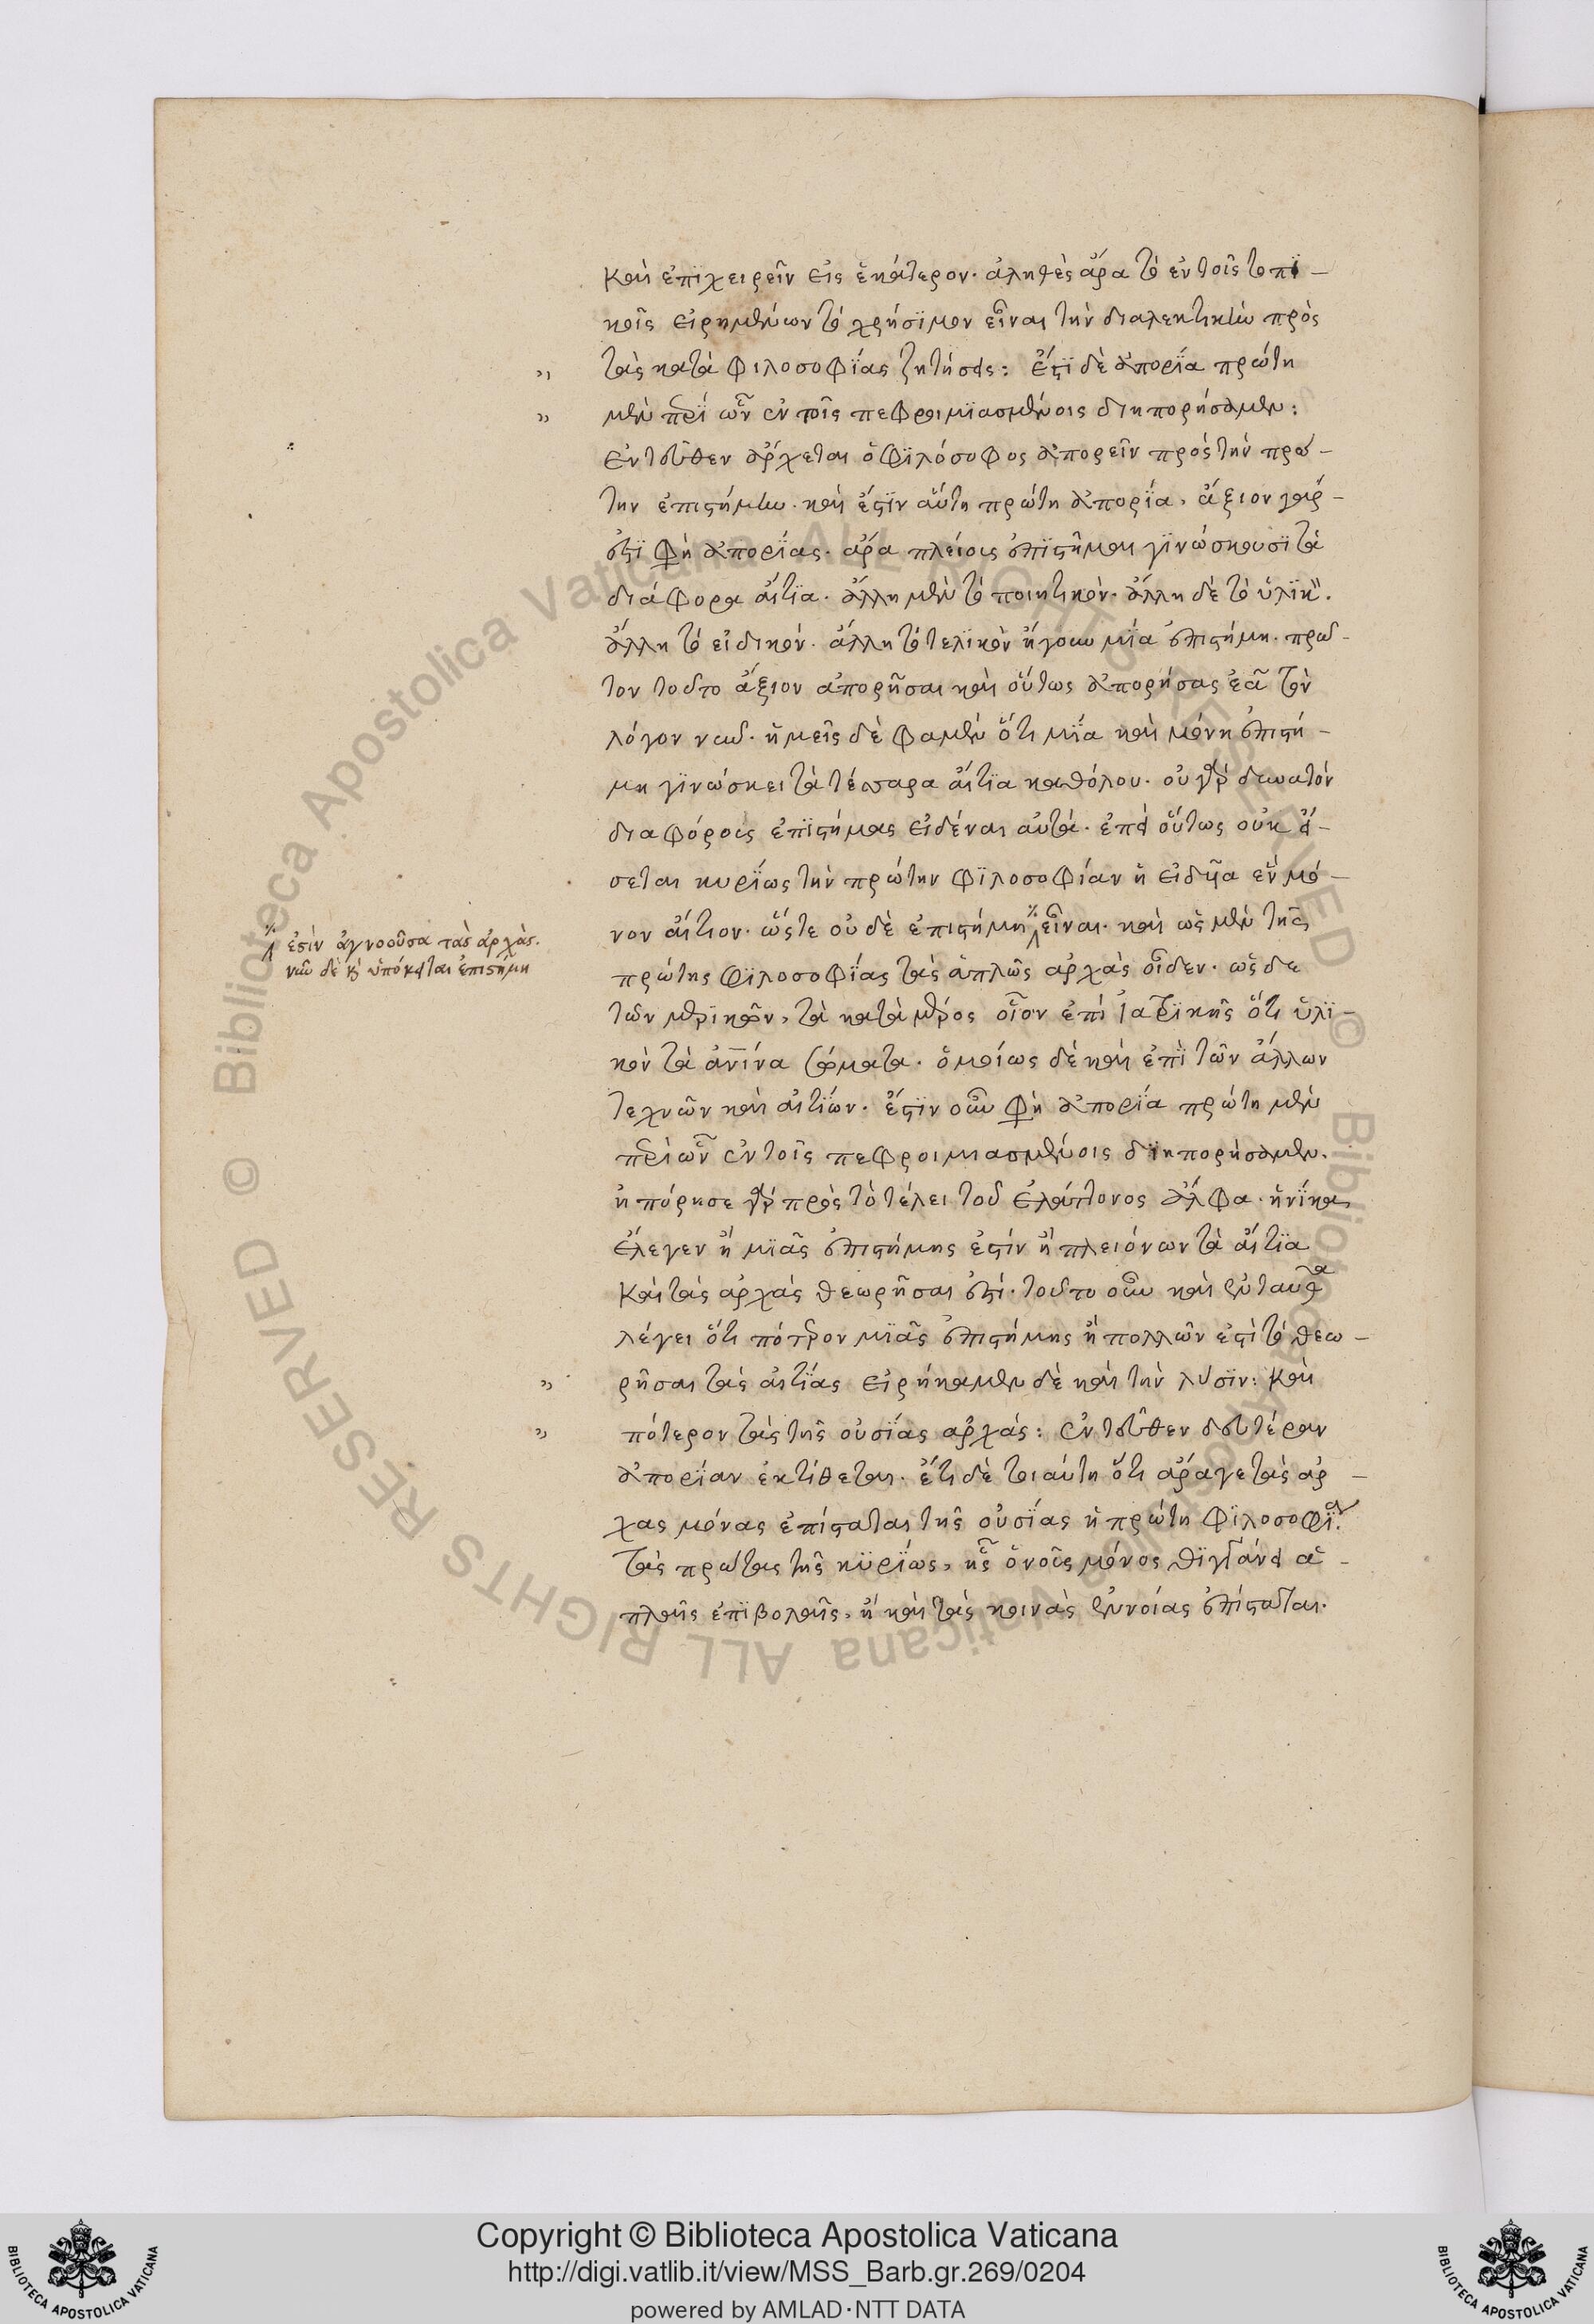 καὶ ἐπϊχειρεῖν εἰς ἑκάτερον· ἀληθὲς ἄρα τὸ ἐν τοῖς τοπϊ-
κοῖς εἰρημένων τὸ χρήσϊμον εἶναι τὴν διαλεκτικὴν πρὸς
τὰς κατὰ φιλοσοφΐας ζητήσεις: ἔστϊ δὲ ἀπορΐα πρώτη
μὲν περὶ ὧν ἐν τοῖς πεφροιμϊασμένοις διηπορήσαμεν:
ἐντεῦθεν ἄρχεται ὁ φϊλόσοφος ἀπορεῖν πρὸς τὴν πρώ-
την ἐπιστήμην. καὶ ἔστϊν αὕτη πρώτη ἀπορΐα, ἄξιον γάρ-
ἐστϊ φὴ ἀπορΐας. ἆρα πλείοις ἐπϊστῆμαι γϊνώσκουσϊ τὰ
διάφορα αἴτϊα. ἄλλη μὲν τὸ ποιητικὸν. ἄλλη δὲ τὸ ὑλϊκὸν.
ἄλλη τὸ εἰδικὸν. ἄλλη τὸ τελϊκὸν ἤγουν μΐα ἐπιστήμη. πρῶ-
τον τοῦτο ἄξιον ἀπορῆσαι καὶ οὕτως ἀπορήσας ἐᾶ τὸν
λόγον νῦν. ἡμεῖς δὲ φαμὲν ὅτι μΐα καὶ μόνη ἐπιστή-
μη γϊνώσκει τὰ τέσσαρα αἴτϊα καθόλου. οὐ γὰρ δυνατόν
διαφόροις ἐπϊστήμας εἰδέναι αὐτὰ. ἐπεὶ οὕτως οὐκ εἴ-
σεται κυρΐως τὴν πρώτην φϊλοσοφίαν ἡ εἰδυῖα ἓν μό-
νον αἴτιον. ὥστε οὐδὲ ἐπιστήμη εἶναι. καὶ ὡς μὲν τῆς
ἐστὶν ἀγνοοῦσα τὰς ἀρχὰς.
νῦν δὲ καὶ ὑπόκειται ἐπιστήμη
πρώτης φϊλοσοφΐας τὰς ἁπλῶς ἀρχὰς οἶδεν. ὡς δε
τῶν μερϊκῶν, τὰ κατὰ μέρος οἷον ἐπὶ ἰατρϊκῆς ὅτι ὑλϊ-
κὸν τὰ ἀνίνα σώματα. ὁμοίως δὲ καὶ ἐπὶ τῶν ἄλλων
τεχνῶν καὶ αἰτϊῶν. ἔστϊν οὖν φὴ ἀπορΐα πρώτη μὲν
περὶ ὧν ἐν τοῖς πεφροιμιασμένοις δϊηπορήσαμεν.
ἠπόρησε γὰρ πρὸς τὸ τέλει τοῦ ἐλάττονος ἄλφα. ἡνΐκα
ἔλεγεν ἢ μϊᾶς ἐπιστήμης ἐστίν ἢ πλειόνων τὰ αἴτϊα
καὶ τὰς ἀρχάς θεωρῆσαι ἐστί. τοῦτο οὖν καὶ ἐνταῦθα
λέγει ὅτι πότερον μϊᾶς ἐπιστήμης ἢ πολλῶν ἐστὶ τὸ θεω-
ρῆσαι τὰς αἰτΐας εἰρήκαμεν δὲ καὶ τὴν λύσϊν: καὶ
πότερον τὰς τῆς οὐσΐας ἀρχάς: ἐντεῦθεν δευτέραν
ἀπορΐαν ἐκτίθεται. ἔτι δὲ τοιαύτη ὅτι ἆρά γε τὰς ἀρ-
χας μόνας ἐπίσταται τῆς οὐσΐας ἡ πρώτη φϊλοσοφΐα.
τὰς πρώτας τῆς κϋρΐως, ἧς ὁ νοῦς μόνος θϊγγάνει ἁ-
πλαῖς ἐπϊβολαῖς, ἢ καὶ τὰς κοινὰς ἐννοίας ἐπίσταται.
Copyright © Biblioteca Apostolica Vaticana
http://digi.vatlib.it/view/MSS_Barb.gr.269/0204
powered by AMLAD·NTT DATA
BIBLIOTECA APOSTOLICA VATICANA
BIBLIOTECA APOSTOLICA VATICANA
© Biblioteca Apostolica Vaticana ALL RIGHTS RESERVED
© Biblioteca Apostolica Vaticana ALL RIGHTS RESERVED